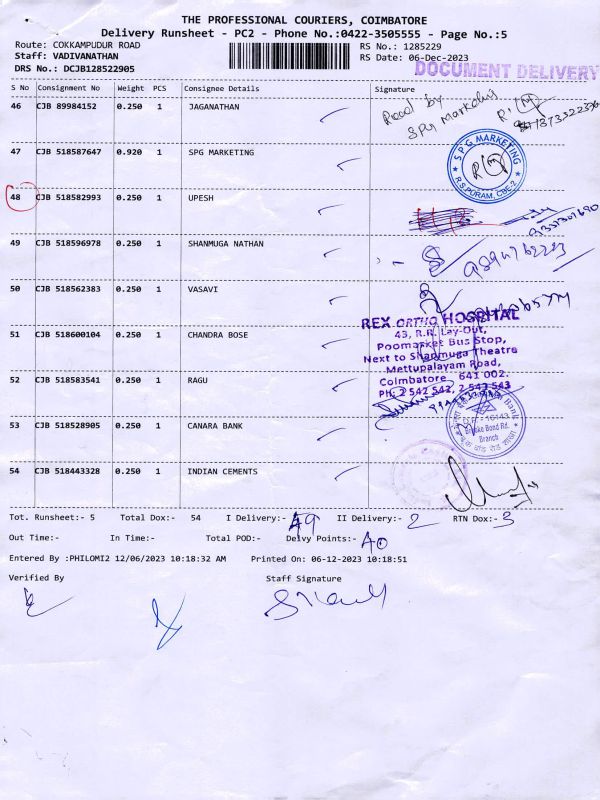 THE PROFESSIONAL COURIERS, COIMBATORE
Delivery Runsheet - PC2 - Phone No.:0422-3505555 - Page No.:5
Route: COKKAMPUDUR ROAD
RS No.: 1285229
Staff: VADIVANATHAN
RS Date: 06-Dec-2023
DRS No.: DCJB128522905
DOCUMENT DELIVERY
S No Consignment No Weight PCS Consignee Details Signature
46 CJB 89984152 0.250 1 JAGANATHAN
Recd by
SPG Marketing
47 CJB 518587647 0.920 1 SPG MARKETING
SPG MARKETING
R.S.PURAM, CBE-2
48 CJB 518582993 0.250 1 UPESH
49 CJB 518596978 0.250 1 SHANMUGA NATHAN
50 CJB 518562383 0.250 1 VASAVI
REX ORTHO HOSPITAL
43, R.R. Lay-Out,
Poomarket Bus Stop,
Next to Shanmuga Theatre
Mettupalayam Road,
Coimbatore 641 002.
Ph: 2 542 542, 2 543 543
51 CJB 518600104 0.250 1 CHANDRA BOSE
52 CJB 518583541 0.250 1 RAGU
53 CJB 518528905 0.250 1 CANARA BANK
Brooke Bond Rd.
Branch
54 CJB 518443328 0.250 1 INDIAN CEMENTS
Tot. Runsheet:- 5 Total Dox:- 54 I Delivery:- 49 II Delivery:- 2 RTN Dox:- 3
Out Time:- In Time:- Total POD:- Delvy Points:- 40
Entered By :PHILOMI2 12/06/2023 10:18:32 AM Printed On: 06-12-2023 10:18:51
Verified By Staff Signature